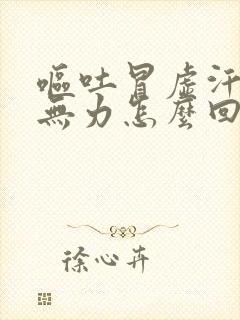 嘔吐冒虛汗
無力怎麼回
徐心卉